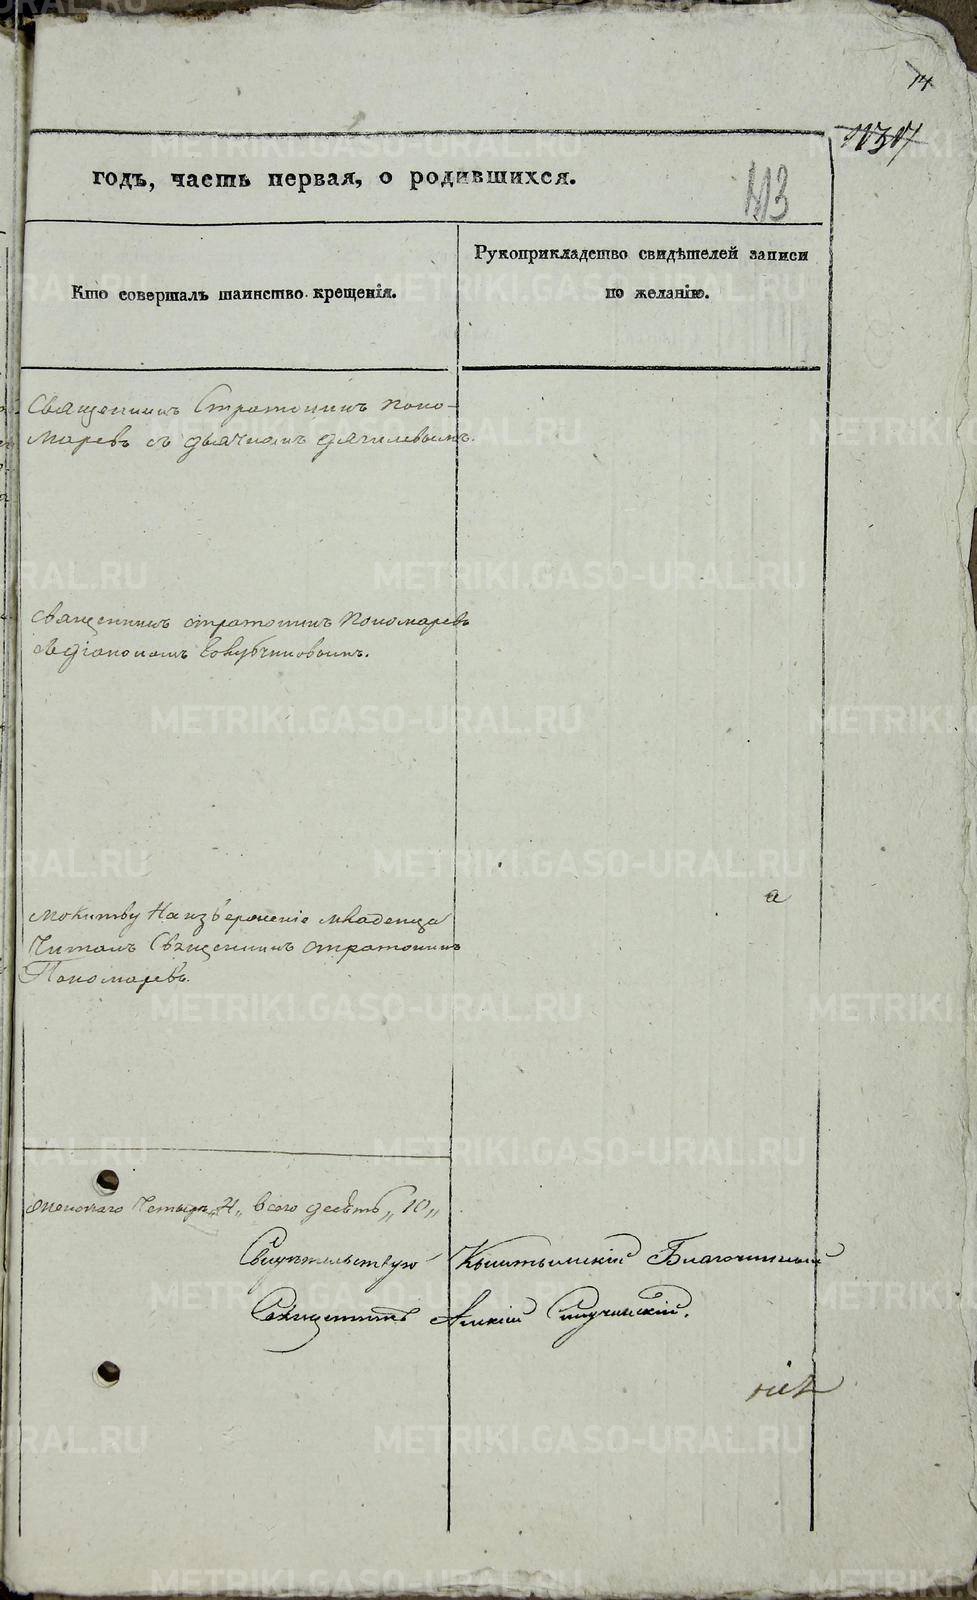 14
годъ, часть первая, о родившихся.
113
Кто совершалъ таинство крещенія.
Рукоприкладство свидѣтелей записи
по желанію.
Священникъ Стратоникъ Поно-
маревъ съ дьячкомъ
Священникъ Стратоникъ Пономаревъ
съ діакономъ
Молитву на изверженіе младенца
Читалъ Священникъ Стратоникъ
Пономаревъ.
женскаго Четыре „4„ всего десять „10„
Свидѣтельствую Кыштымскій Благочинный
Священникъ
METRIKI.GASO-URAL.RU